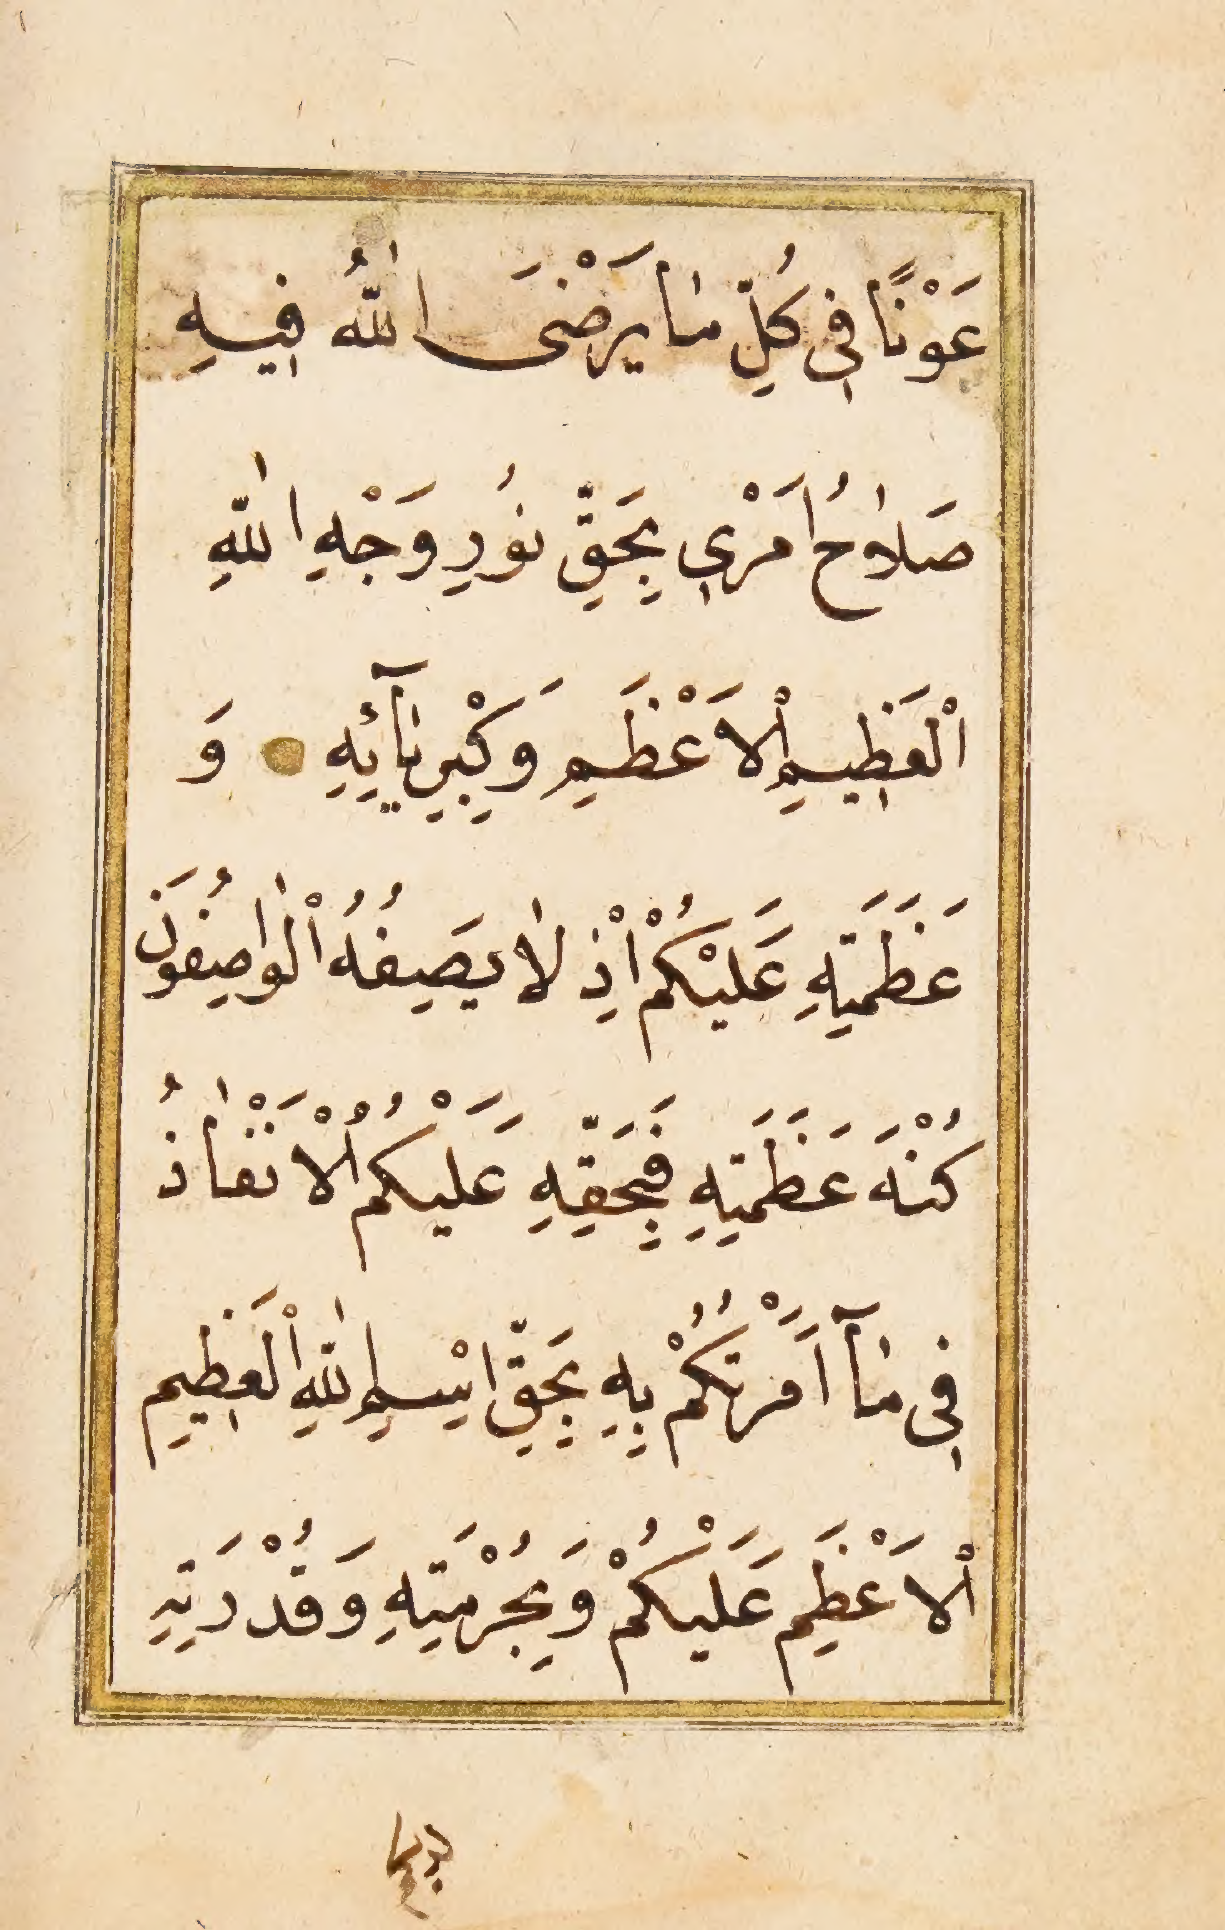 عَوْنًا فِى كُلِّ مٰا يَرْضَى اللّٰهُ فِيهِ
صَلٰاحُ اَمْرِي بِحَقِّ نُورِ وَجْهِ اللّٰهِ
الْعَظِيمِ الْاَعْظَمِ وَكِبْرِيٰآئِهِ وَ
عَظَمَتِهِ عَلَيْكُمْ اِذْ لٰا يَصِفُهُ الْوٰاصِفُونَ
كُنْهَ عَظَمَتِهِ فَبِحَقِّهِ عَلَيْكُمُ الْاَنْفٰاذُ
فِى مٰآ اَمَرْتُكُمْ بِهِ بِحَقِّ اِسْمِ اللّٰهِ الْعَظِيمِ
الْاَعْظَمِ عَلَيْكُمْ وَبِحُرْمَتِهِ وَقُدْرَتِهِ